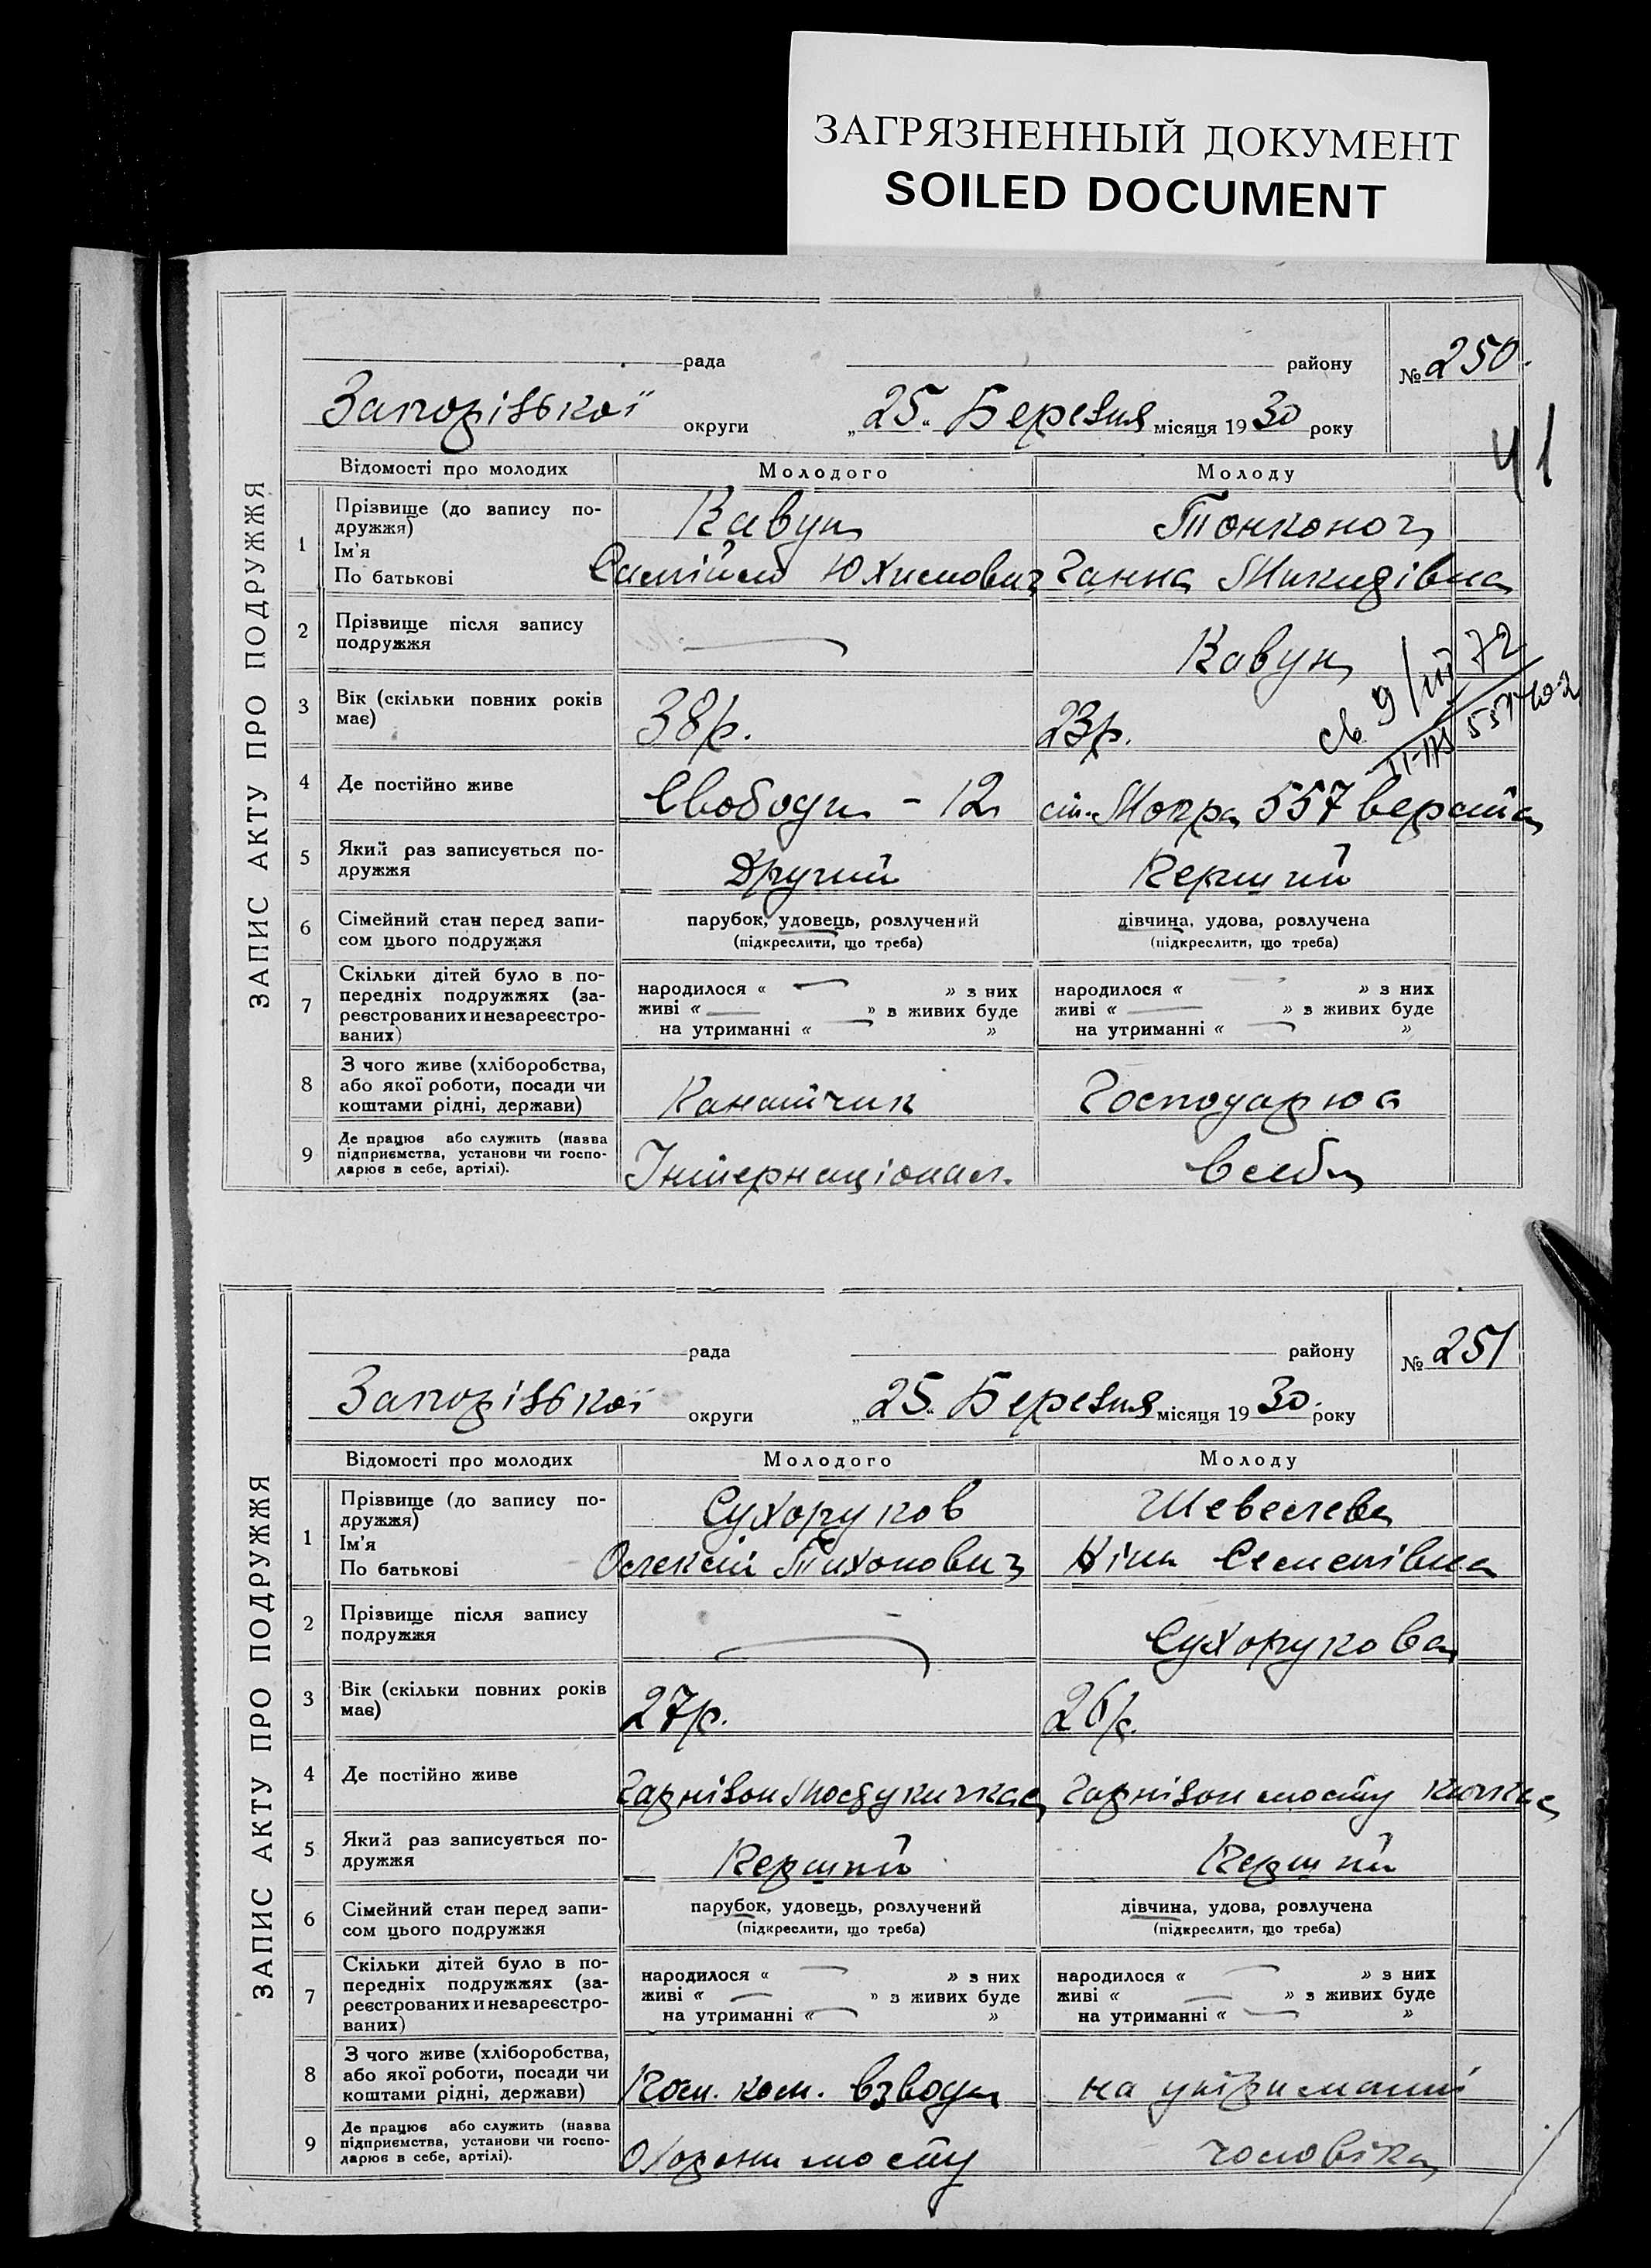 ЗАГРЯЗНЕННЫЙ ДОКУМЕНТ
SOILED DOCUMENT
ЗАПИС АКТУ ПРО ПОДРУЖЖЯ
рада району № 250.
Запорізької округи „25“ Березня місяця 1930 року
41
Відомості про молодих Молодого Молоду
1 Прізвище (до запису по-
дружжя) Кавун Тонконог
Ім'я
По батькові Самійло Юхимович Ганна Микидівна
2 Прізвище після запису
подружжя — Кавун
3 Вік (скільки повних років
має) 38 р. 23 р.
9/III 72
4 Де постійно живе Свободи - 12 ст. Мокра 557 верста
5 Який раз записується по-
дружжя Другий Перший
6 Сімейний стан перед запи-
сом цього подружжя
парубок, удовець, розлучений дівчина, удова, розлучена
(підкреслити, що треба) (підкреслити, що треба)
7 Скільки дітей було в по-
передніх подружжях (за-
реєстрованих и незареєстро-
ваних)
народилося « — » з них народилося « — » з них
живі « — » з живих буде живі « — » з живих буде
на утриманні « — » на утриманні « — »
8 З чого живе (хліборобства,
або якої роботи, посади чи
коштами рідні, держави) Канатчик Господарює
9 Де працює або служить (назва
підприємства, установи чи госпо-
дарює в себе, артілі). Інтернаціонал. в себе
ЗАПИС АКТУ ПРО ПОДРУЖЖЯ
рада району № 251
Запорізької округи „25“ Березня місяця 1930. року
Відомості про молодих Молодого Молоду
1 Прізвище (до запису по-
дружжя) Сухоруков Шевелева
Ім'я
По батькові Олексій Тихонович Ніна Семенівна
2 Прізвище після запису
подружжя — Сухорукова
3 Вік (скільки повних років
має) 27 р. 26 р.
4 Де постійно живе Гарнізон Мосту Кичкас Гарнізон мосту Кичкас
5 Який раз записується по-
дружжя Перший Перший
6 Сімейний стан перед запи-
сом цього подружжя
парубок, удовець, розлучений дівчина, удова, розлучена
(підкреслити, що треба) (підкреслити, що треба)
7 Скільки дітей було в по-
передніх подружжях (за-
реєстрованих и незареєстро-
ваних)
народилося « — » з них народилося « — » з них
живі « — » з живих буде живі « — » з живих буде
на утриманні « — » на утриманні « — »
8 З чого живе (хліборобства,
або якої роботи, посади чи
коштами рідні, держави) Пом. ком. взводу на утриманні
9 Де працює або служить (назва
підприємства, установи чи госпо-
дарює в себе, артілі). Охорони мосту чоловіка